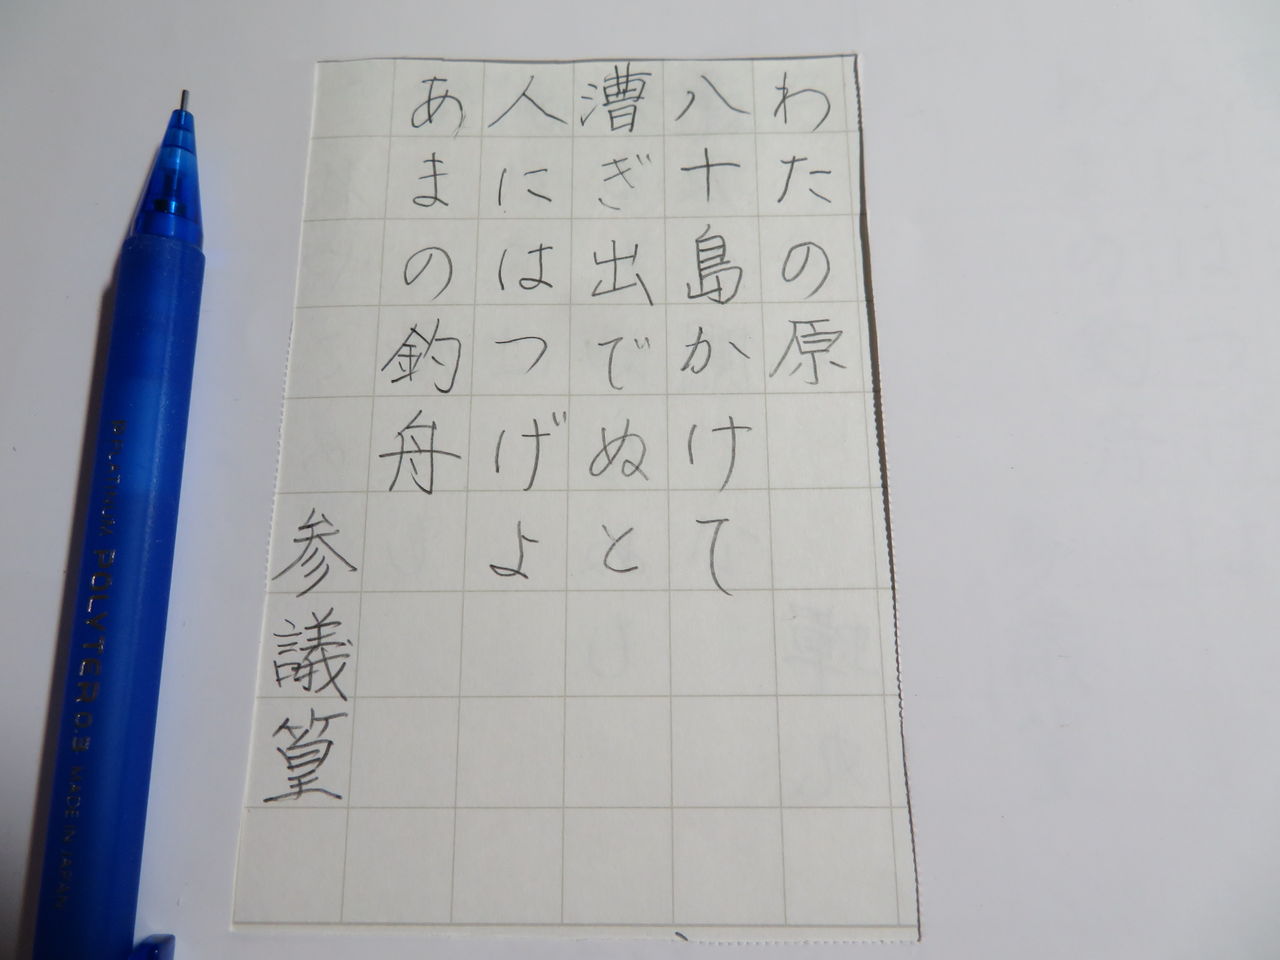 わたの原
八十島かけて
漕ぎ出でぬと
人にはつげよ
あまの釣舟
参議篁
PLATINUM POLYTER 0.3 MADE IN JAPAN